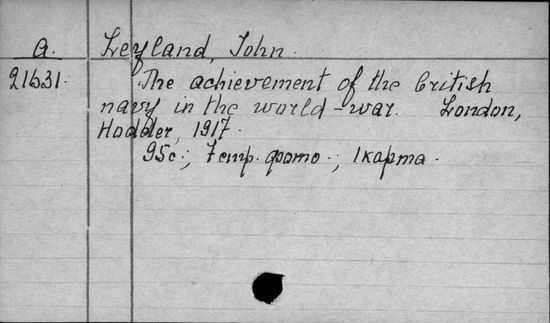 A. Leyland, John.
21631. The achievement of the british
navy in the world-war. London,
Hodder, 1917.
95с.; 7 стр. фото.; 1 карта.